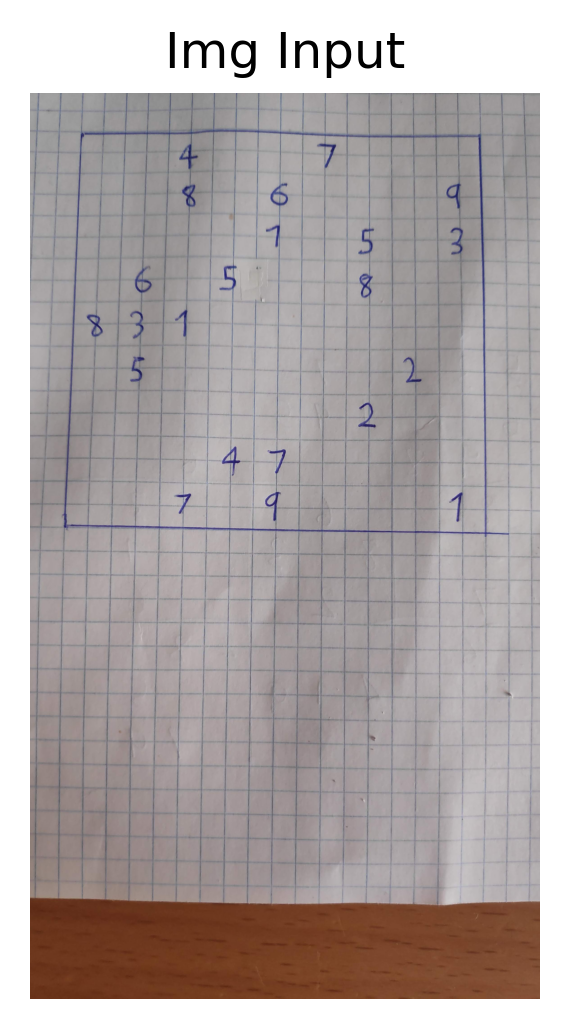 Img Input
4 7
8 6 9
1 5 3
6 5 8
8 3 1
5 2
2
4 7
7 9 1